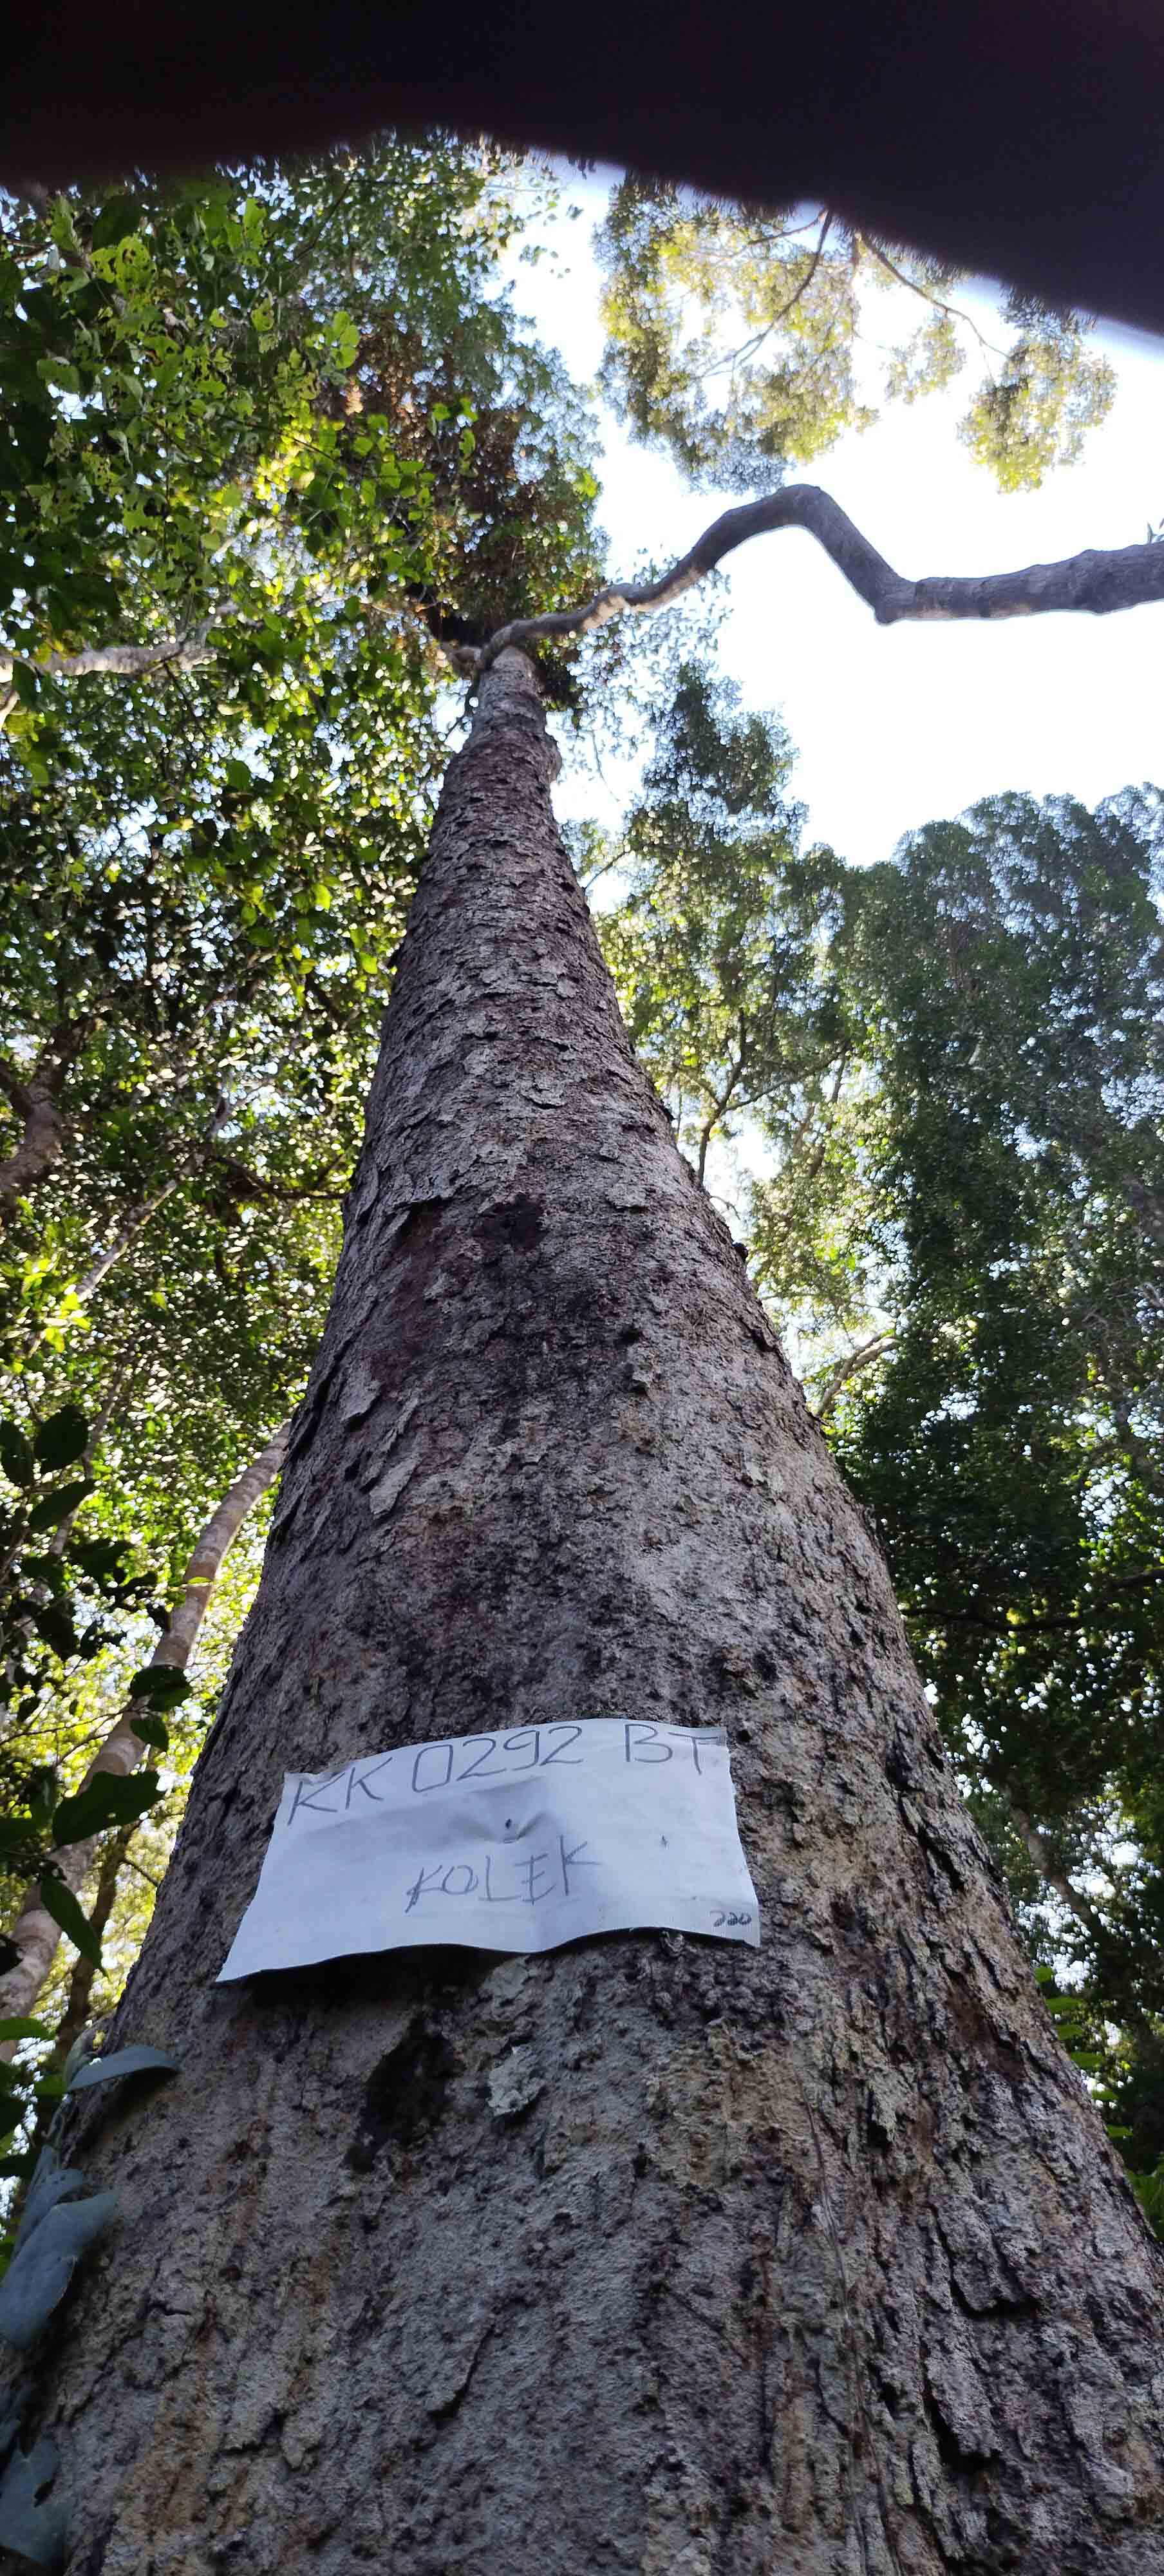 KK 0292 BT
KOLEK
220